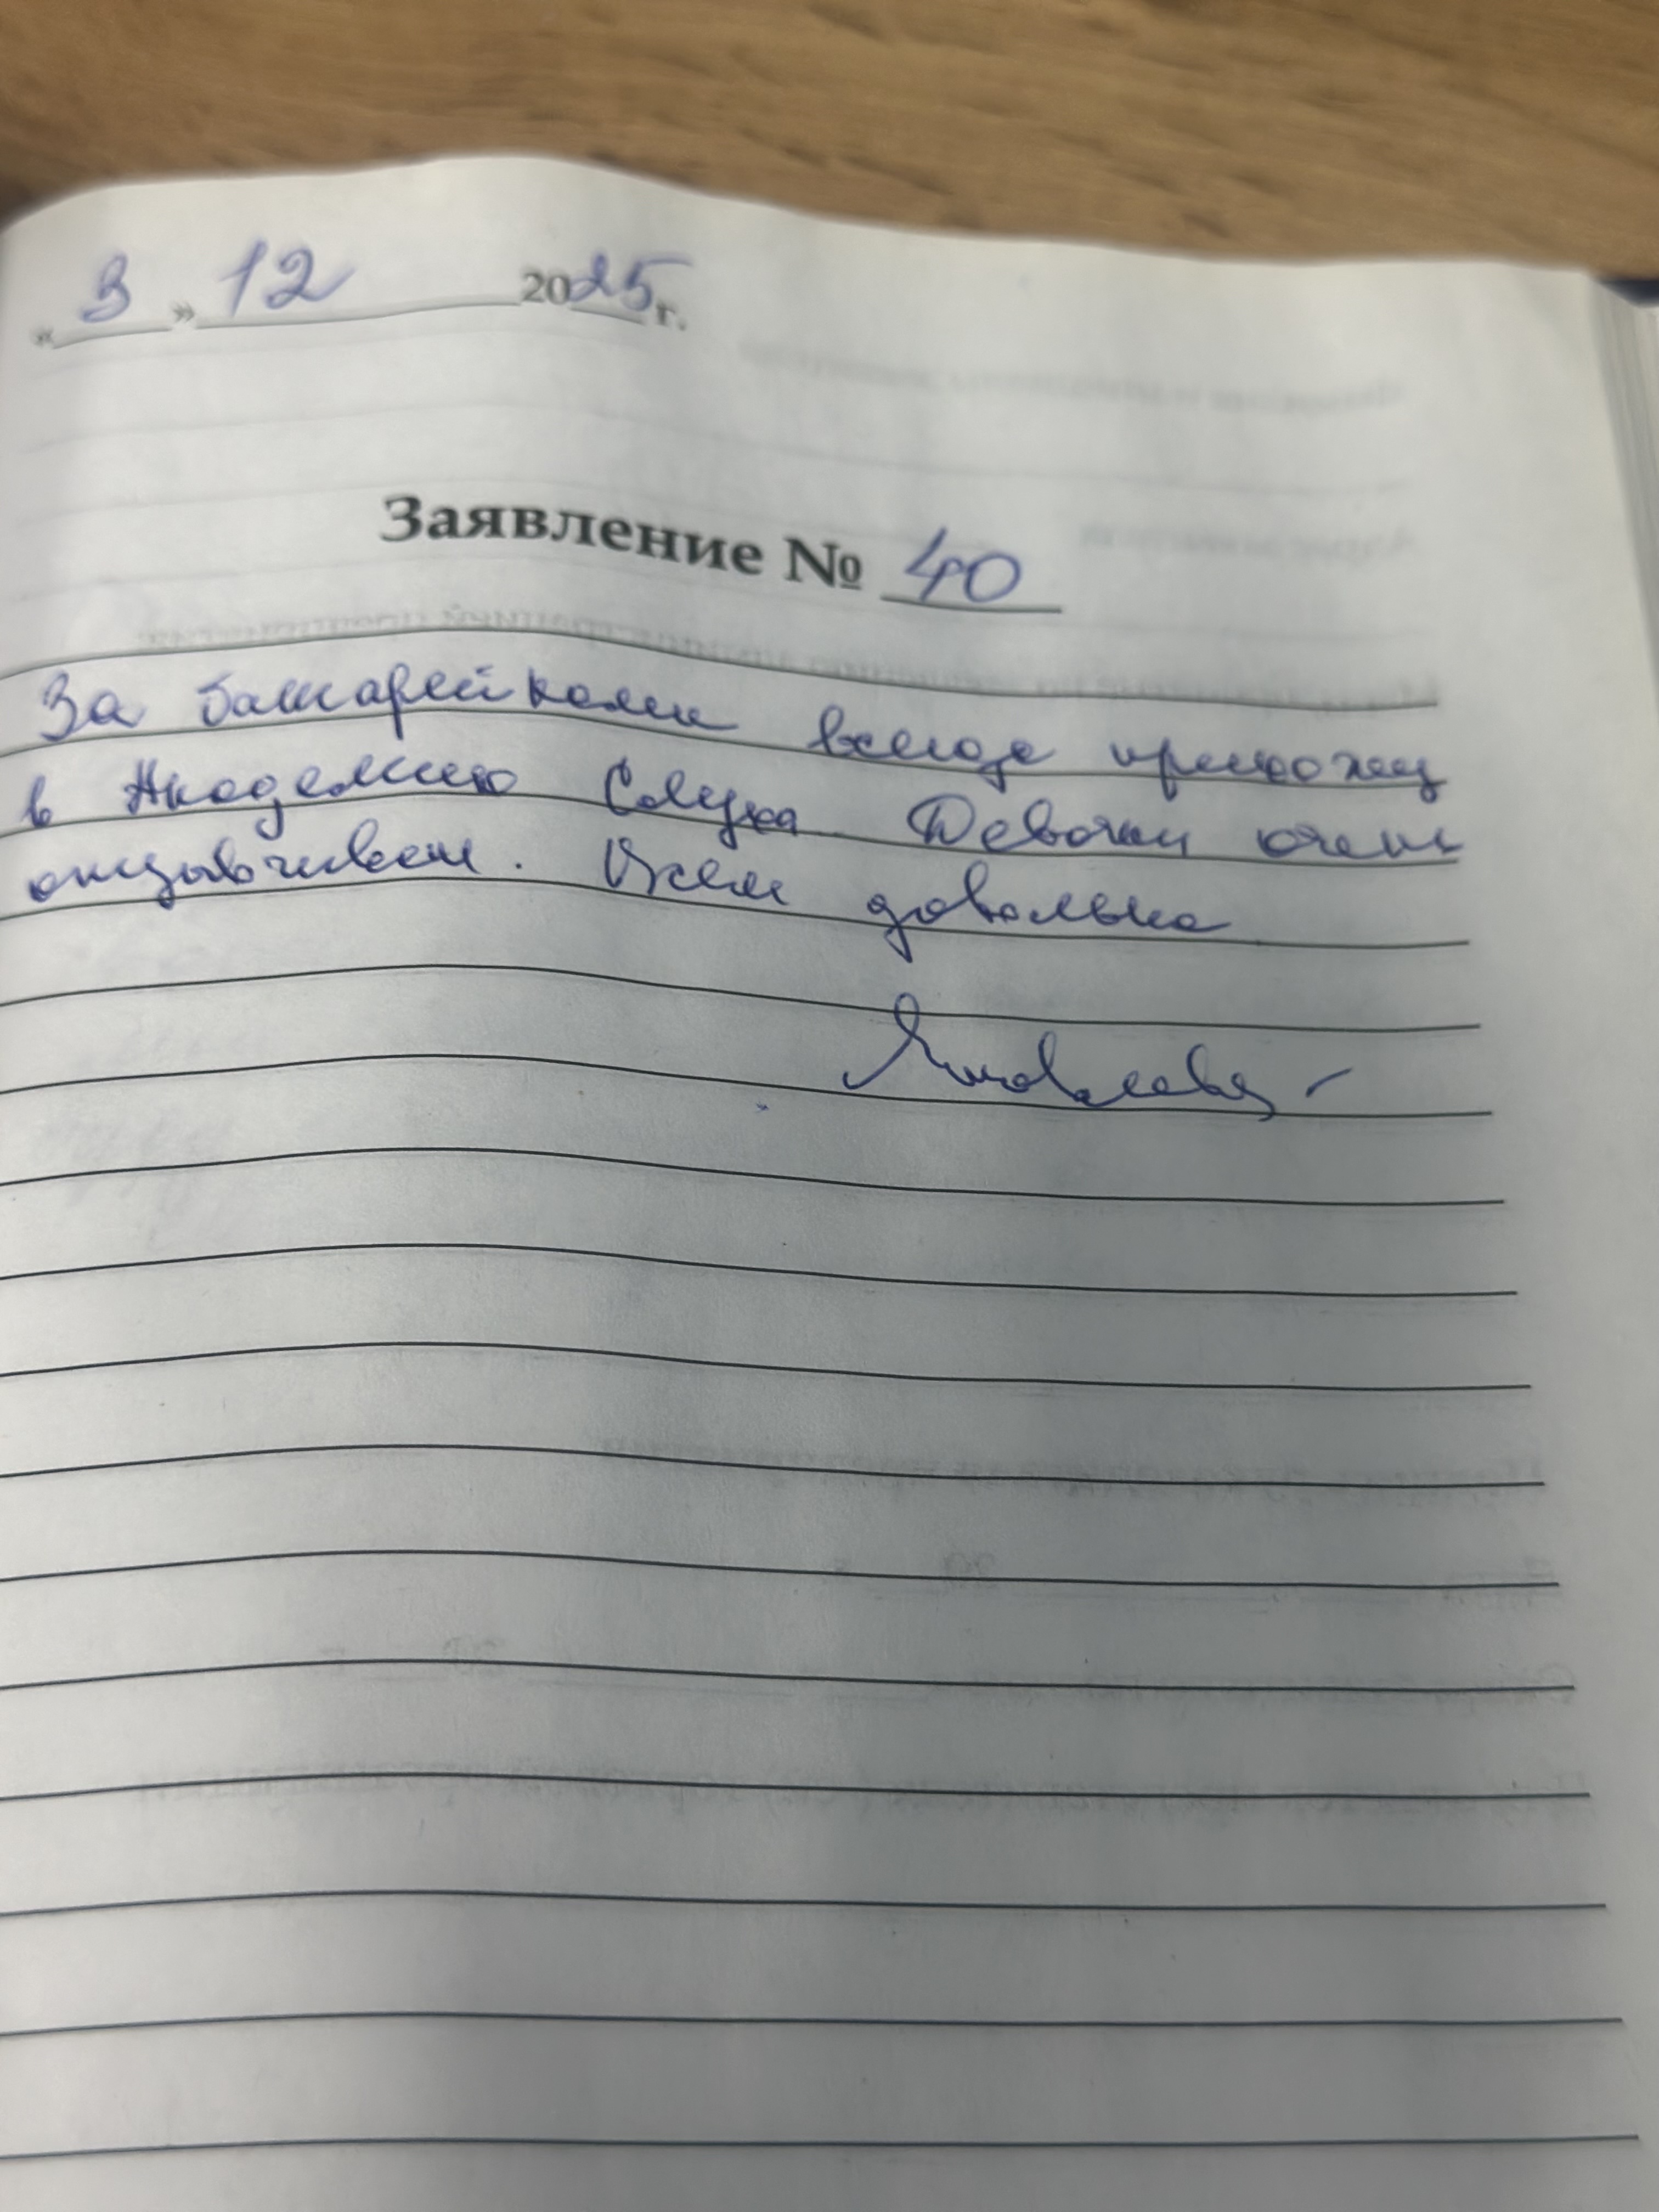 « 3 » 12 2025 г.
Заявление № 40
За батарейками всегда прихожу
в Академию Слуха Девочки очень
отзывчивы. Всем довольна
Яковлева